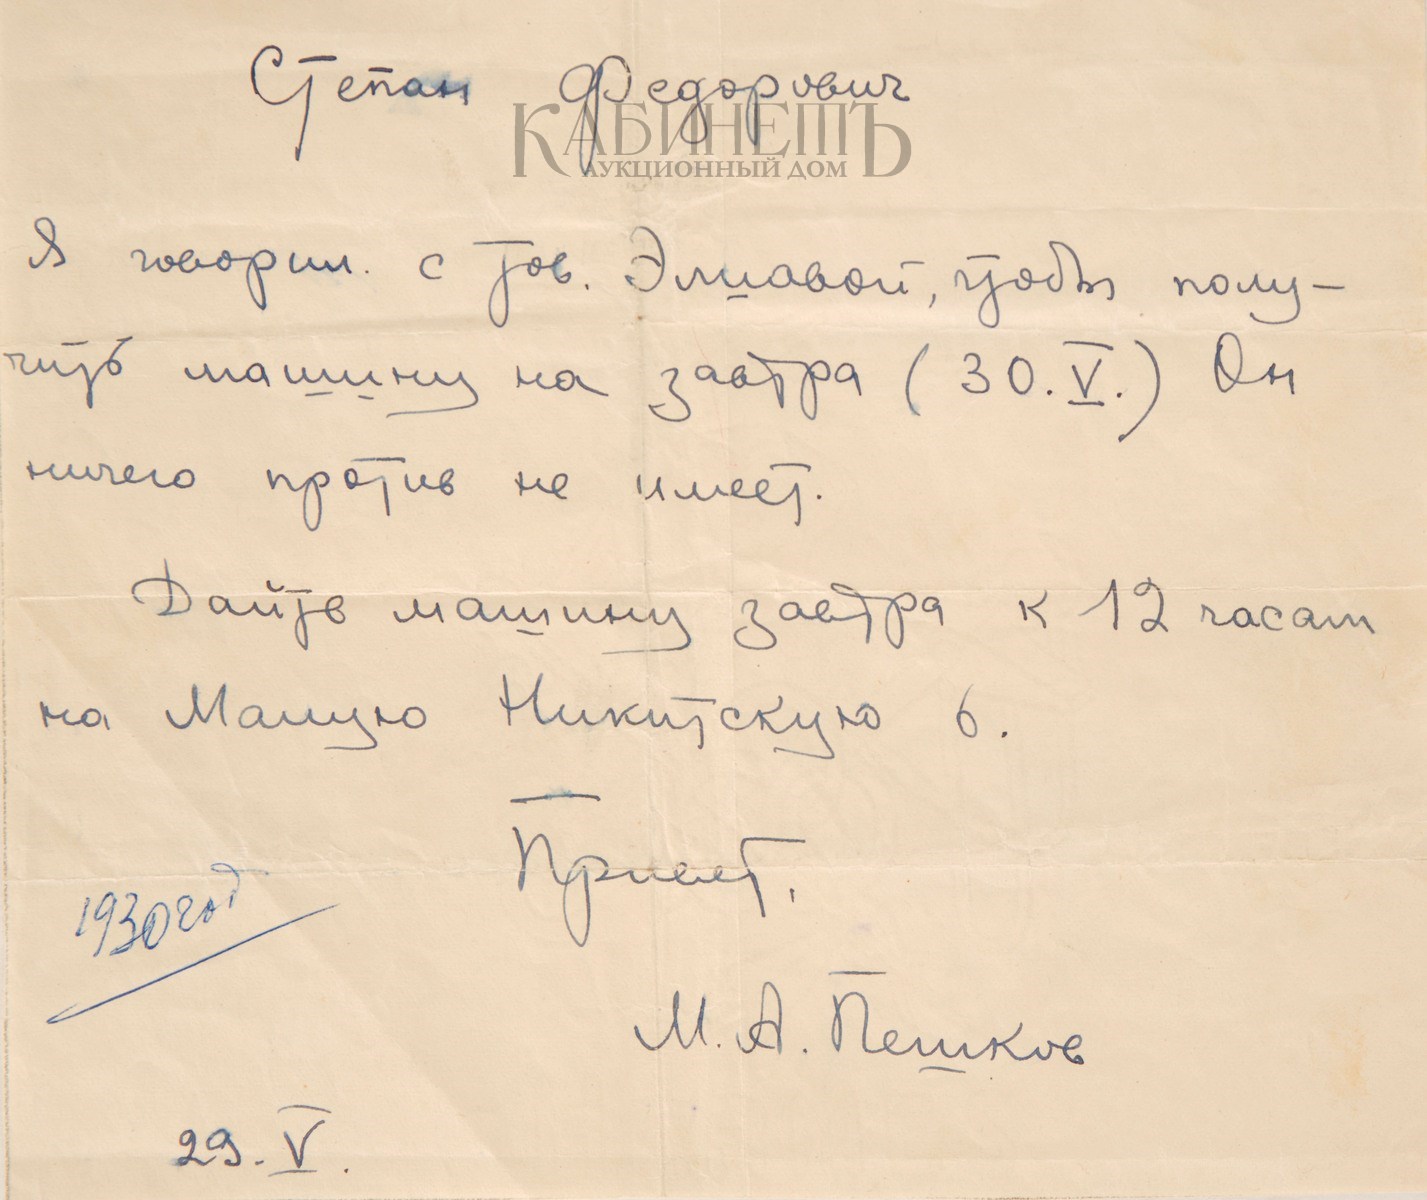 Степан Федорович
КАБИНЕТЪ
АУКЦИОННЫЙ ДОМ
Я говорил. с тов. Элиавой, чтобы полу-
чить машину на завтра (30.V.) Он
ничего против не имеет.
Дайте машину завтра к 12 часам
на Малую Никитскую 6.
Привет.
1930 год
М. А. Пешков
29. V.